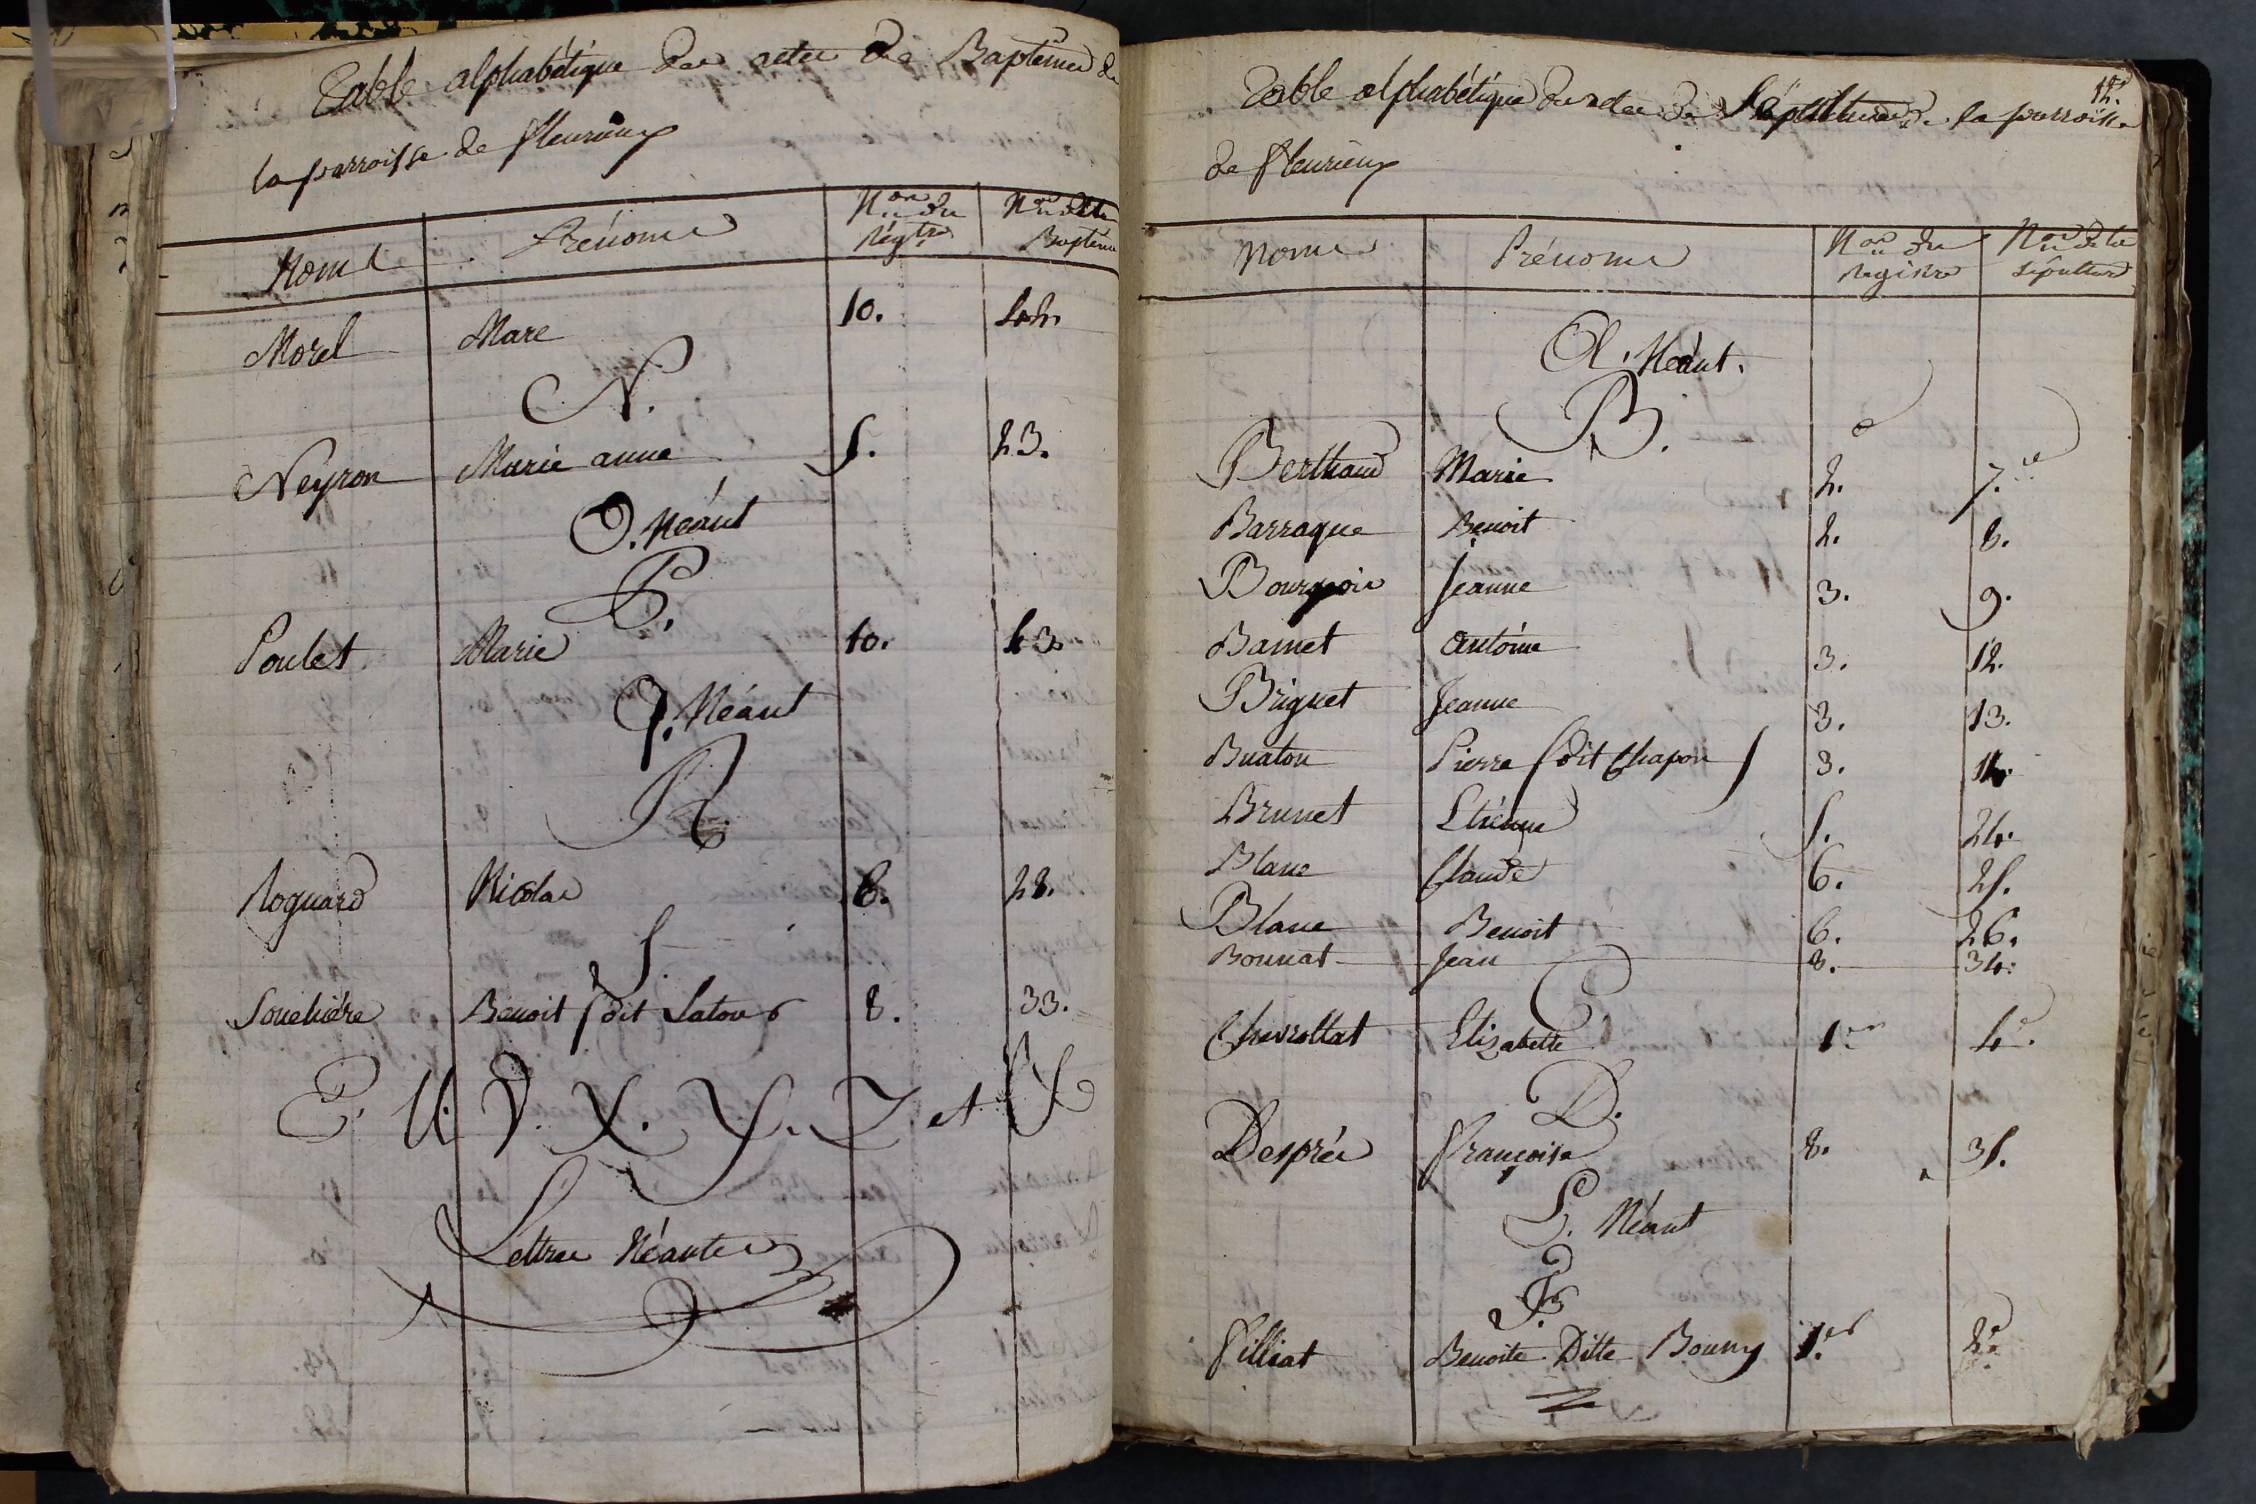 Table alphabétique des actes de Baptêmes de
la parroisse de fleurieux
Noms Prénoms Nos du Régtre Nos de la Baptême
Morel Marc 10. 42.
N.
Neyron Marie anne 5. 23.
O. Néant
P.
Poulet Marie 10. 43
Q. Néant
R.
Roguard Nicolas 6. 28.
S.
Souchière Benoit (dit Latour 8. 33.
T. U. V. X. Y. Z et &
Lettres Néantes
12.
Table alphabétique des actes de Sépultures de la parroisse
de fleurieux
Noms Prénoms Nos du Registre Nos de la sépulture
A. Néant.
B.
Berthaud Marie 2. 7.e
Barraque Benoit 2. 8.
Jeanne 3. 9.
Bamet antoine 3. 12.
Briguet Jeanne 3. 13.
Buaton Pierre (dit Chapon) 3. 14.
Brunet Etienne 5. 24.
Blanc Claude 6. 25.
Blanc Benoit 6. 26.
Bonnat Jean 8. 34.
C.
Chevrottat Elizabette 1.er 4.e
D.
Desprées françoise 8. 35.
E. Néant
F.
filliat Benoite Ditte Bouny 1.er 2.e